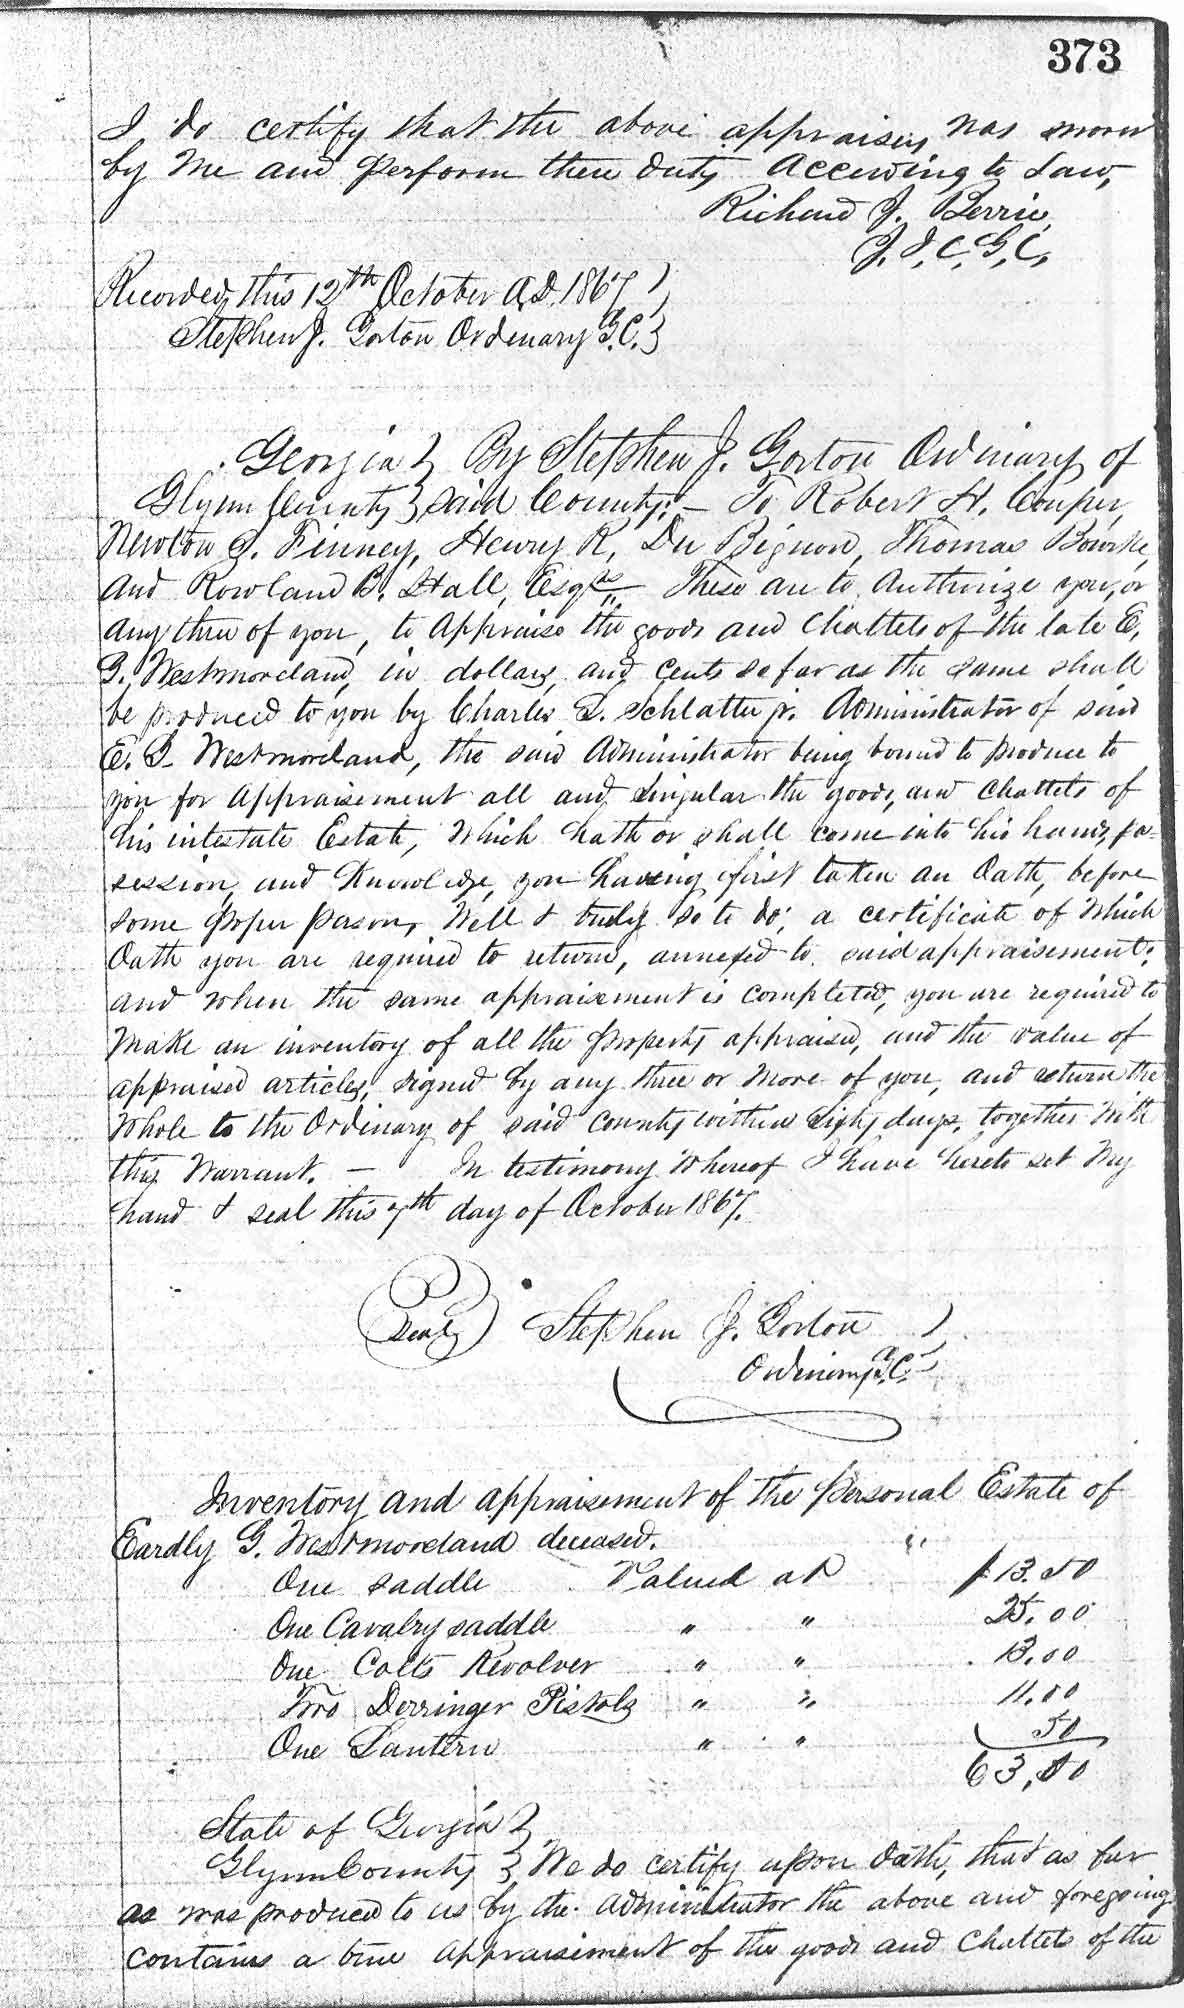 373
I do certify that the above appraisers was sworn
by me and perform there duty according to Law,
Richard J. Berrie,
J. I. C. G. C.
Recorded this 12th October A.D. 1867 }
Stephen J. Gorton Ordinary G.C. }
Georgia } By Stephen J. Gorton Ordinary of
Glynn County } said County:— To Robert H. Couper,
Newton S. Finney, Henry R. Du Bignon, Thomas Bourke,
and Rowland B. Hall, Esqrs — These are to authorize you, or
any three of you, to appraise the goods and chattels of the late E.
G. Westmoreland, in dollars, and cents so far as the same shall
be produced to you by Charles L. Schlatter jr. Administrator of said
E. G. Westmoreland, the said Administrator being bound to produce to
you for appraisement all and singular the goods, and chattels of
his intestate Estate, which hath or shall come into his hands, pos-
session, and knowledge, you having first taken an Oath, before
some proper person, well & truly so to do; a certificate of which
Oath you are required to return, annexed to said appraisement;
and when the same appraisement is completed, you are required to
make an inventory of all the property appraised, and the value of
appraised articles, signed by any three or more of you, and return the
whole to the Ordinary of said county within sixty days, together with
this Warrant. — In testimony whereof I have hereto set my
hand & seal this 7th day of October 1867.
Seal Stephen J. Gorton }
Ordinary G.C. }
Inventory and appraisement of the Personal Estate of
Eardly G. Westmoreland deceased.
One saddle Valued at $13.50
One Cavalry saddle " " 25.00
One Colts Revolver " " 13.00
Two Derringer Pistols " " 11.00
One Lantern " " 50
63,00
State of Georgia }
Glynn County } We do certify upon Oath, that as far
as was produced to us by the Administrator the above and foregoing
contains a true appraisement of the goods and chattels of the